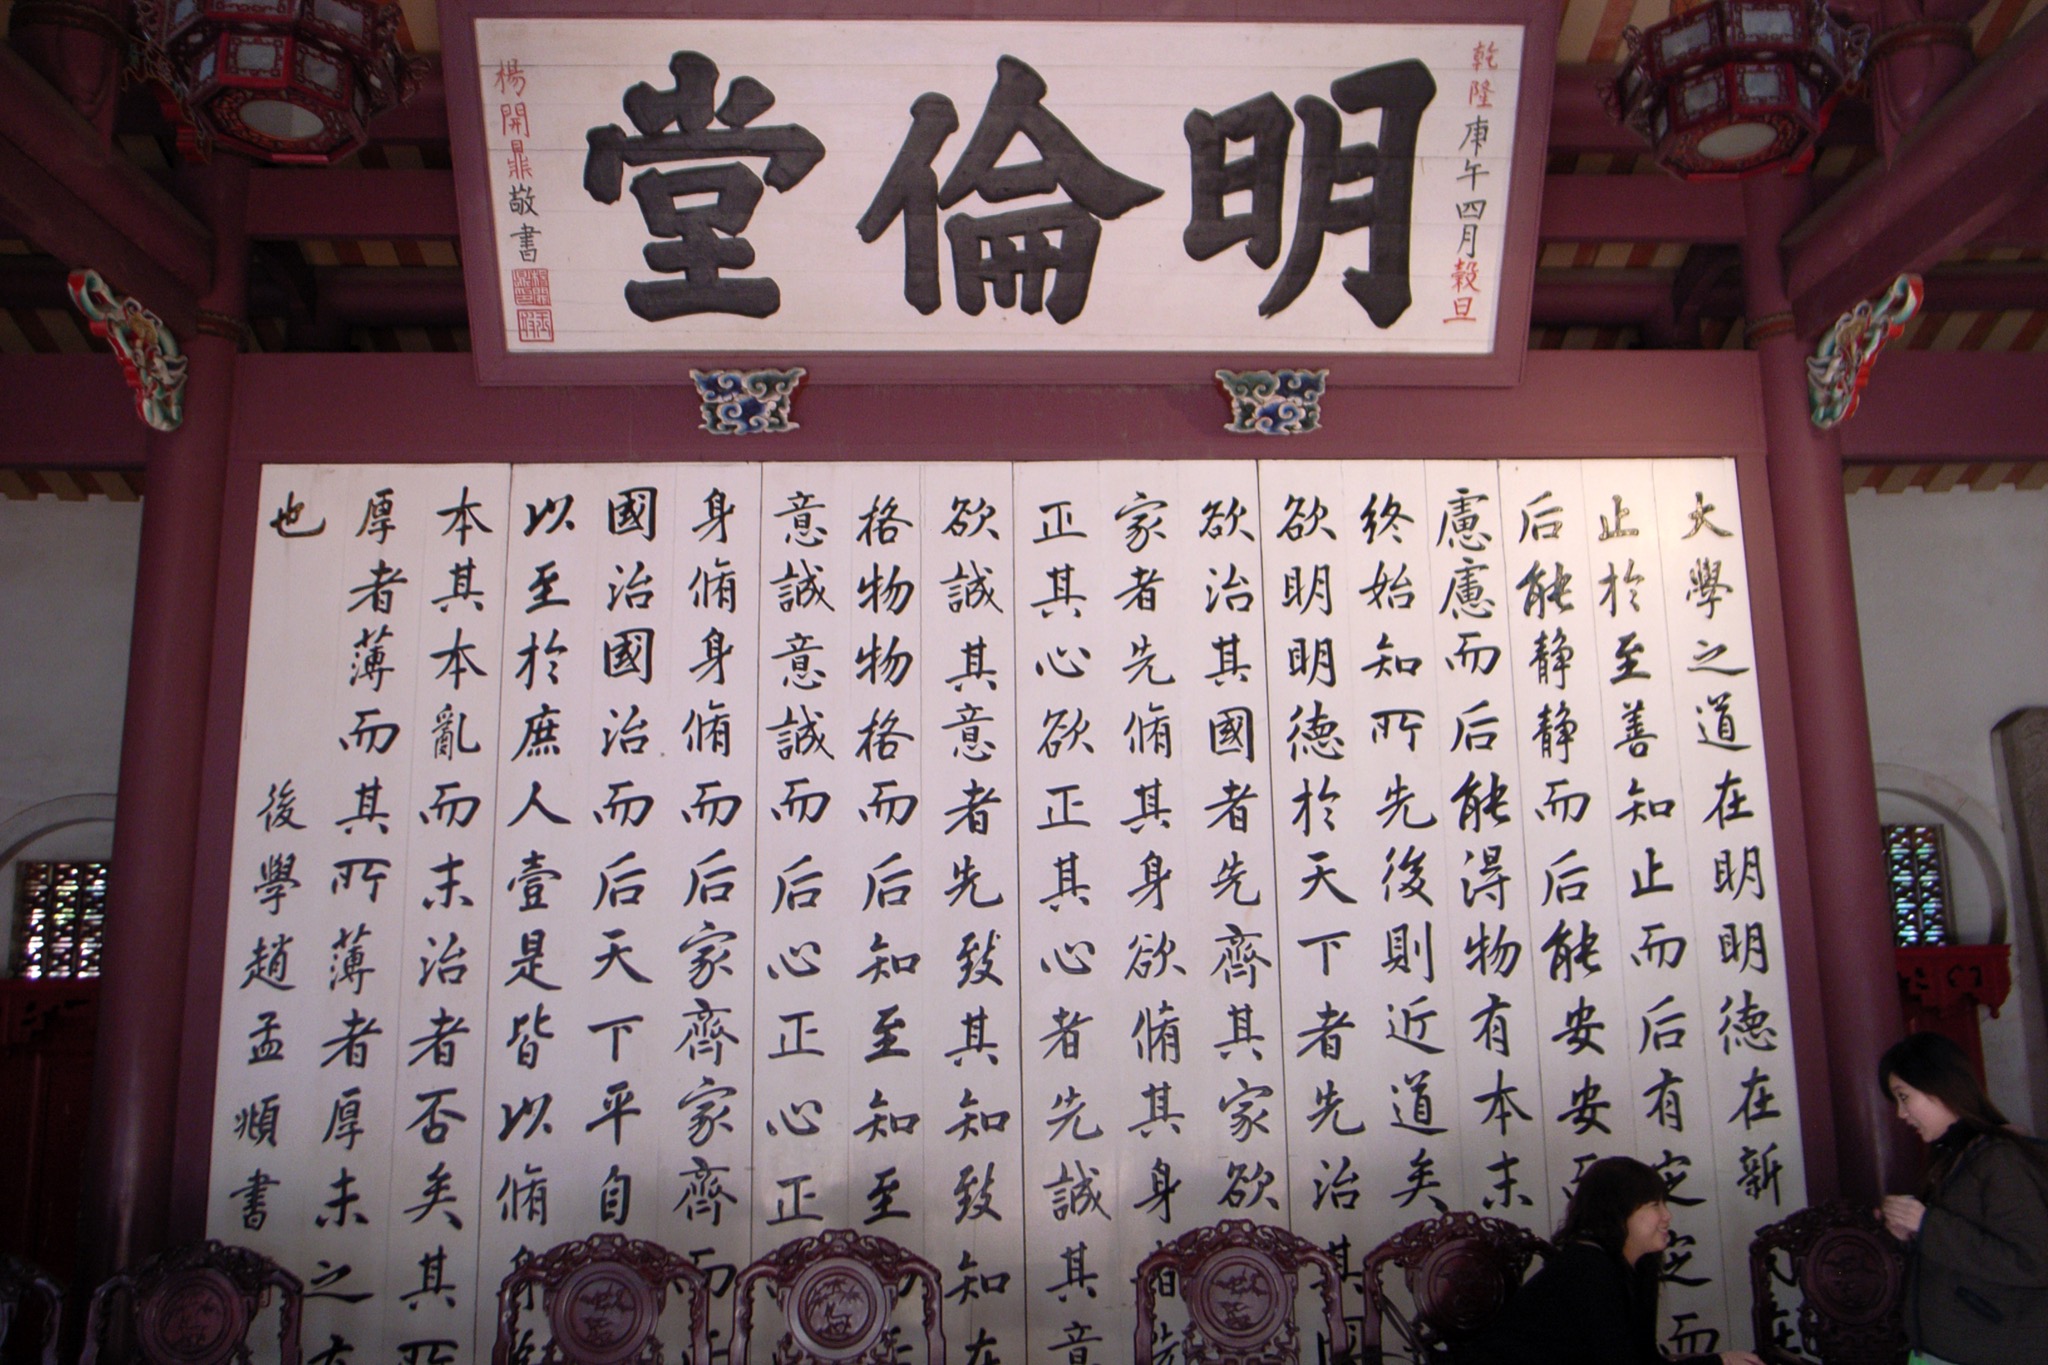 明倫堂
乾隆庚午四月穀旦
楊開鼎敬書
大學之道在明明德在新
止於至善知止而后有定定而
后能静静而后能安安而
慮慮而后能得物有本末
終始知所先後則近道矣
欲明明德於天下者先治其國
欲治其國者先齊其家欲
家者先脩其身欲脩其身者先
正其心欲正其心者先誠其意
欲誠其意者先致其知致知在
格物物格而后知至知至
意誠意誠而后心正心正
身脩身脩而后家齊家齊而
國治國治而后天下平自
以至於庶人壹是皆以脩身
本其本亂而末治者否矣其所
厚者薄而其所薄者厚未之有
也 後學趙孟頫書